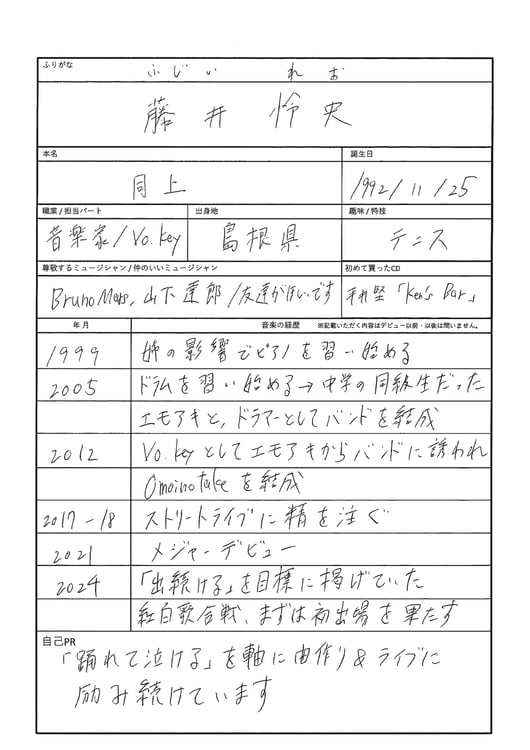 ふりがな
ふじい れお
藤井 怜央
本名
誕生日
同上
1992/11/25
職業/担当パート
出身地
趣味/特技
音楽家/Vo.Key
島根県
テニス
尊敬するミュージシャン/仲のいいミュージシャン
初めて買ったCD
Bruno Mars、山下達郎/友達がほしいです
平井堅「Ken's Bar」
年月
音楽の経歴 ※記載いただく内容はデビュー以前・以後は問いません。
1999 姉の影響でピアノを習い始める
2005 ドラムを習い始める→中学の同級生だった
エモアキと、ドラマーとしてバンドを結成
2012 Vo.Keyとしてエモアキからバンドに誘われ
Omoinotakeを結成
2017-18 ストリートライブに精を注ぐ
2021 メジャーデビュー
2024 「出続ける」を目標に掲げていた
紅白歌合戦、まずは初出場を果たす
自己PR
「踊れて泣ける」を軸に曲作り&ライブに
励み続けています